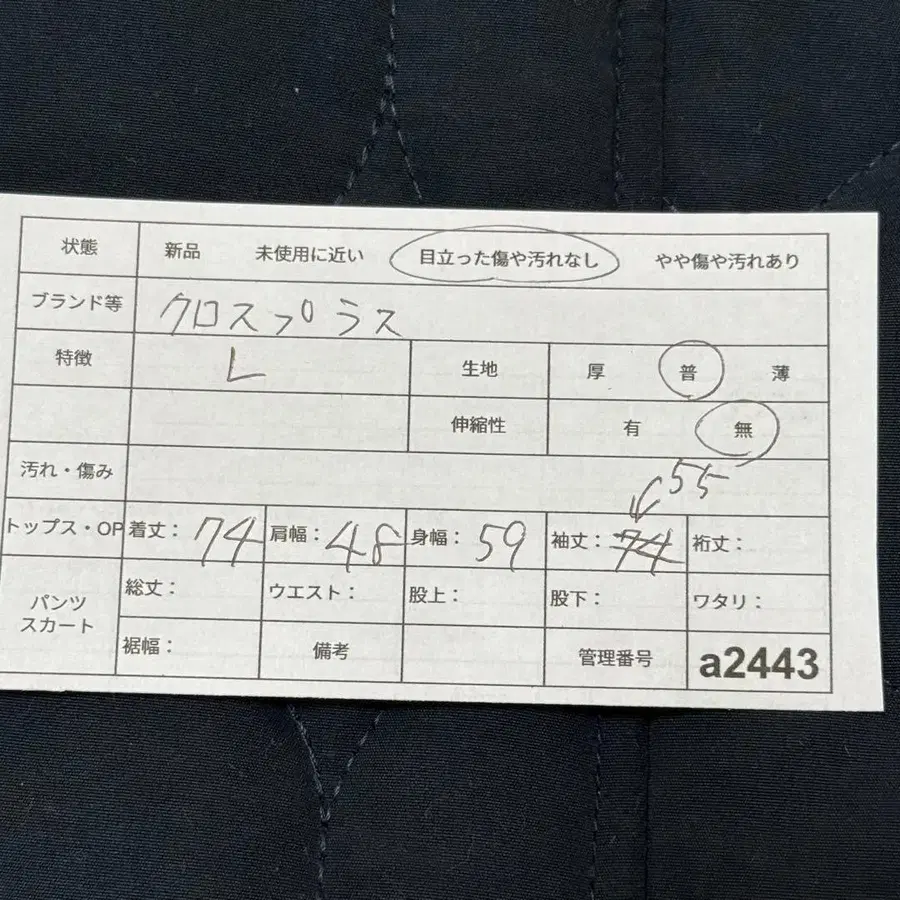 状態 新品 未使用に近い 目立った傷や汚れなし やや傷や汚れあり
ブランド等 クロスプラス
特徴 L 生地 厚 普 薄
伸縮性 有 無
汚れ・傷み 55
トップス・OP 着丈: 74 肩幅: 48 身幅: 59 袖丈: 74 裄丈:
パンツ スカート 総丈: ウエスト: 股上: 股下: ワタリ:
裾幅: 備考 管理番号 a2443